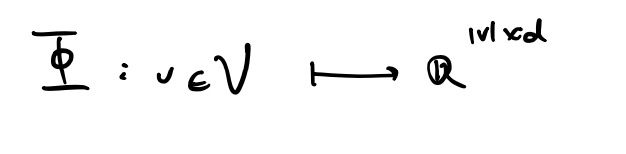 Φ : v ∈ V ↦ ℝ^{|V|×d}